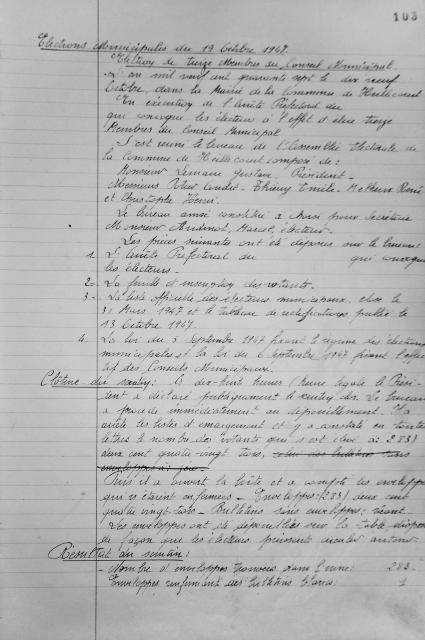 103
Elections Municipales du 19 Octobre 1947.
Election de treize Membres du Conseil Municipal.
L'an mil neuf cent quarante sept le dix neuf
Octobre, dans la Mairie de la Commune de Heillecourt
En exécution de l'arrêté Préfectoral du
qui convoque les électeurs à l'effet d'élire treize
Membres du Conseil Municipal
S'est réuni le bureau de l'Assemblée Electorale de
la Commune de Heillecourt composé de :
Monsieur Lemaire Gustave, Président -
Messieurs Emile - René
et Christophe Henri.
Le bureau ainsi constitué a choisi pour Secrétaire
Monsieur Marcel, électeur -
Les pièces suivantes ont été déposées sur le bureau
1. L'arrêté Préfectoral du qui convoque
les électeurs -
2 - La feuille d'inscription des votants.
3 - La liste officielle des électeurs municipaux, close le
31 Mars 1947 et le tableau de rectifications publié le
13 Octobre 1947.
4. La loi du 5 Septembre 1947 fixant le régime des élections
municipales et la loi du 6 Septembre 1947 fixant l'effec
tif des Conseils Municipaux.
Clôture du scrutin : à dix-huit heures (heure légale le Prési-
dent a déclaré publiquement le scrutin clos. Le bureau
a procédé immédiatement au dépouillement. Il a
arrêté les listes d'émargement et y a constaté en toutes
lettres le nombre des votants qui s'est élevé à: 283)
deux cent quatre-vingt trois,
enveloppes
Puis il a ouvert la boîte et a compté les enveloppes
qui s'étaient enfermées - Enveloppes: (283) deux cent
quatre vingt-trois - Bulletins sans enveloppes: néant -
Les enveloppes ont été dépouillées sur la table
de façon que les électeurs puissent circuler autour -
Résultat du scrutin :
- Nombre d'enveloppes trouvées dans l'urne : 283.
- Enveloppes renfermant des bulletins blancs. 1